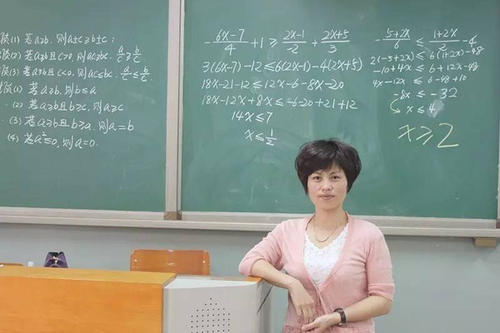 质(1) 若a≥b, 则a±c≥b±c;
(2) 若a≥b且c>0, 则ac≥bc, a/c≥b/c
(3) 若a≥b且c<0, 则ac≤bc, a/c≤b/c
(1) 若a≥b, 则b≤a
(2) 若a≥b且b≥c, 则a≥c
(3) 若a≥b且b≥a, 则a=b
(4) 若a²≤0, 则a=0.
-(6x-7)/4+1≥(2x-1)/2-(2x+5)/3
3(6x-7)-12≤6(2x-1)-4(2x+5)
18x-21-12≤12x-6-8x-20
18x-12x+8x≤-6-20+21+12
14x≤7
x≤1/2
(5+2x)/6≤(1+2x)/2-4
-10+4x≤6+12x-48
4x-12x≤6-48+10
-8x≤-32
x≤4
x≥2